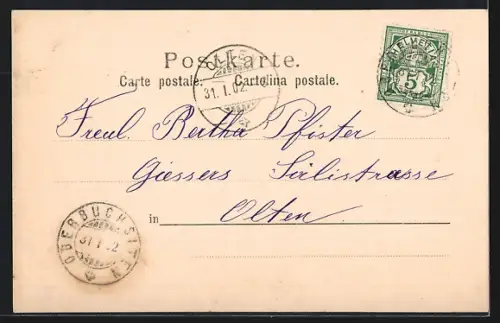 Postkarte.
Carte postale. Cartolina postale.
OLTEN
31.I.02
HELVETIA
5
Freul. Bertha Pfister
Giessers Sälistrasse
in Olten.
OBERBUCHSITEN
31.I.02